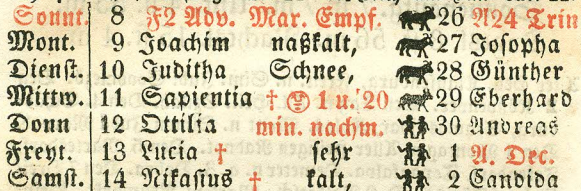 Sonnt. 8 F2 Adv. Mar. Empf. 26 A24 Trin
Mont. 9 Joachim naßkalt, 27 Josopha
Dienst. 10 Juditha Schnee, 28 Günther
Mittw. 11 Sapientia † 1 u. 20 29 Eberhard
Donn 12 Ottilia min. nachm. 30 Andreas
Freyt. 13 Lucia † sehr 1 A. Dec.
Samst. 14 Nikasius † kalt, 2 Candida